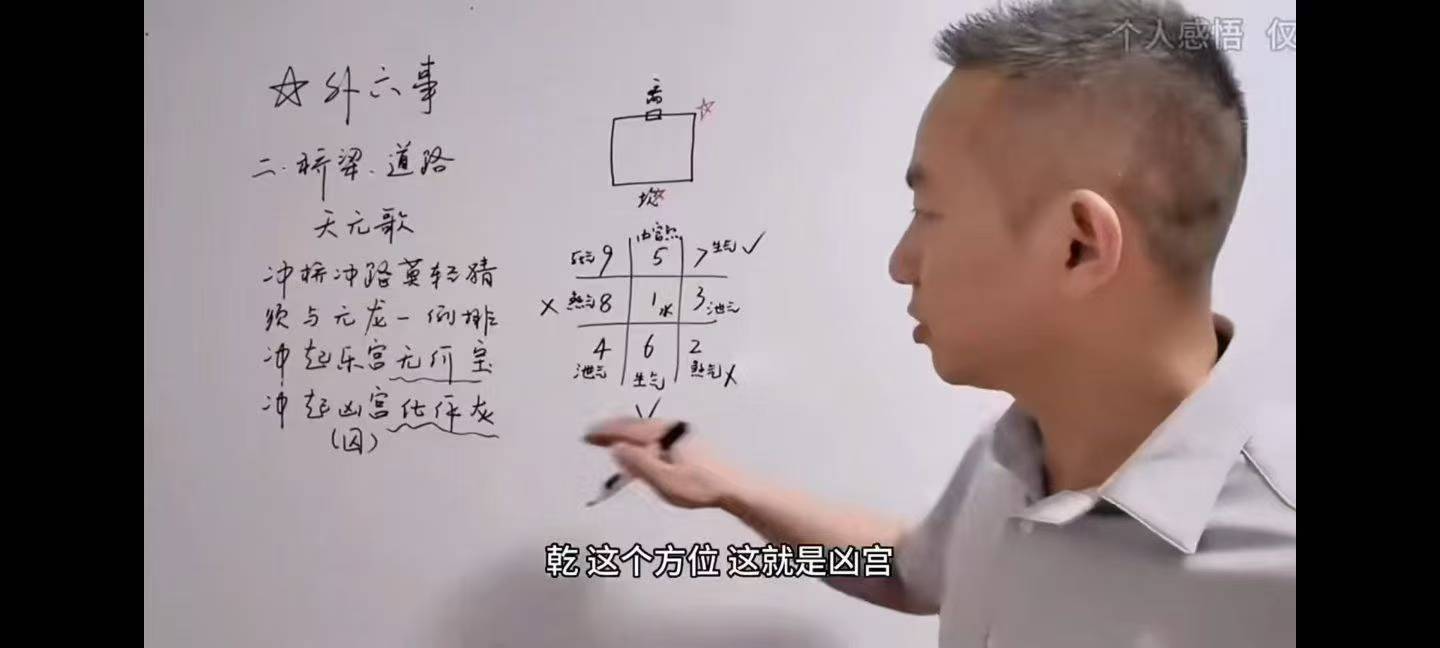 个人感悟 仅
☆外六事
二.桥梁、道路
天元歌
冲桥冲路莫轻猜
须与元龙一例排
冲起乐宫无价宝
冲起凶宫化作灰
(囚)
离
坎
死气 9 5 7 生气 ✓
X 煞气 8 1水 3 泄气
4 6 2
泄气 生气 煞气 X
✓
乾 这个方位 这就是凶宫